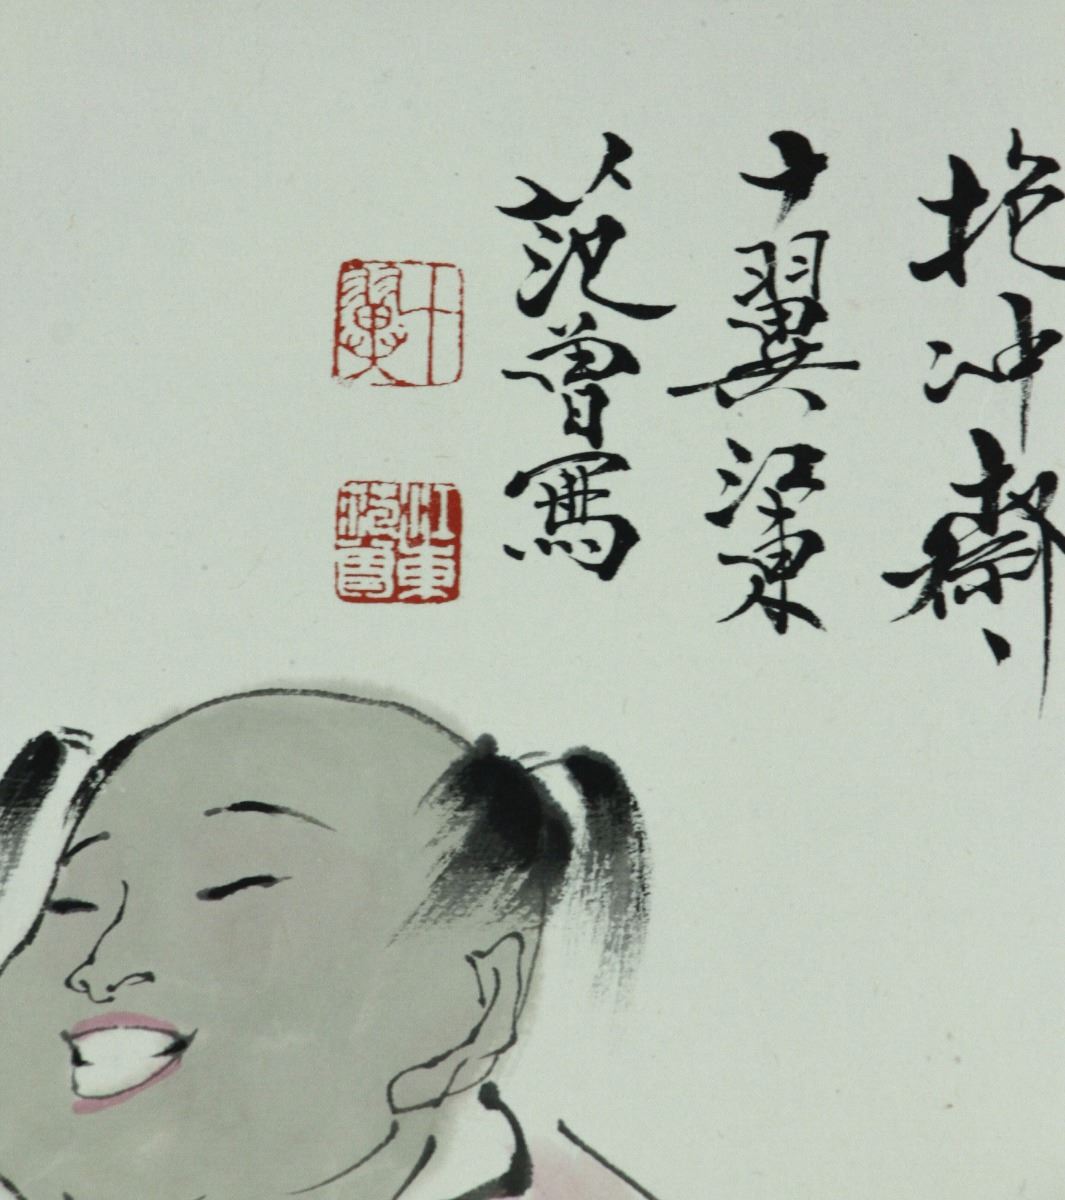 抱冲齋
十翼江東
范曾寫
十翼
江東
范曾